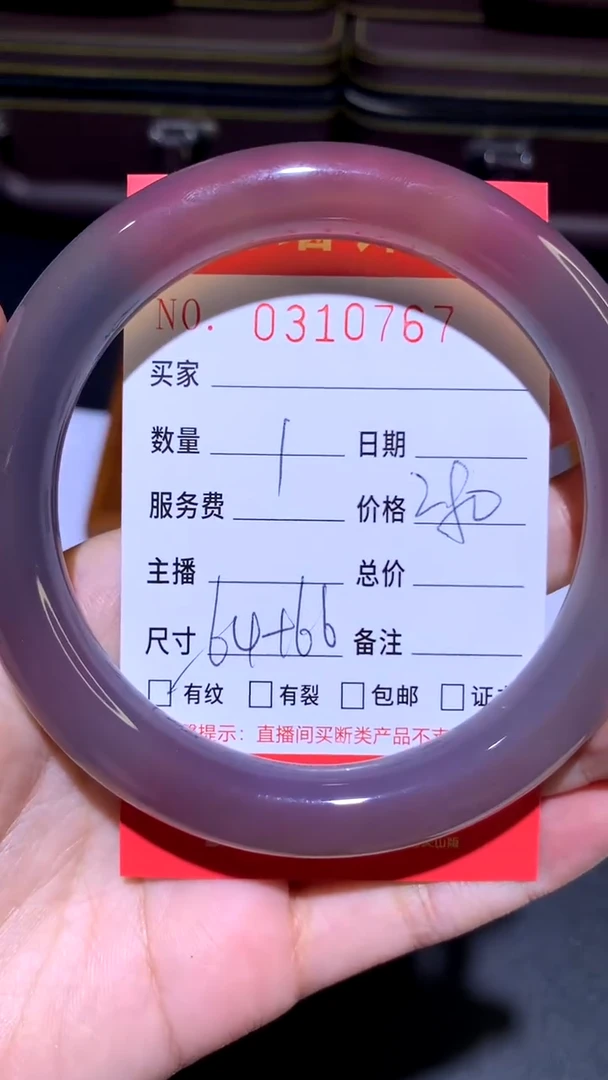 NO. 0310767
买家
数量 1 日期
服务费 价格 280
主播 总价
尺寸 64+66 备注
有纹 有裂 包邮 证
提示：直播间买断类产品不